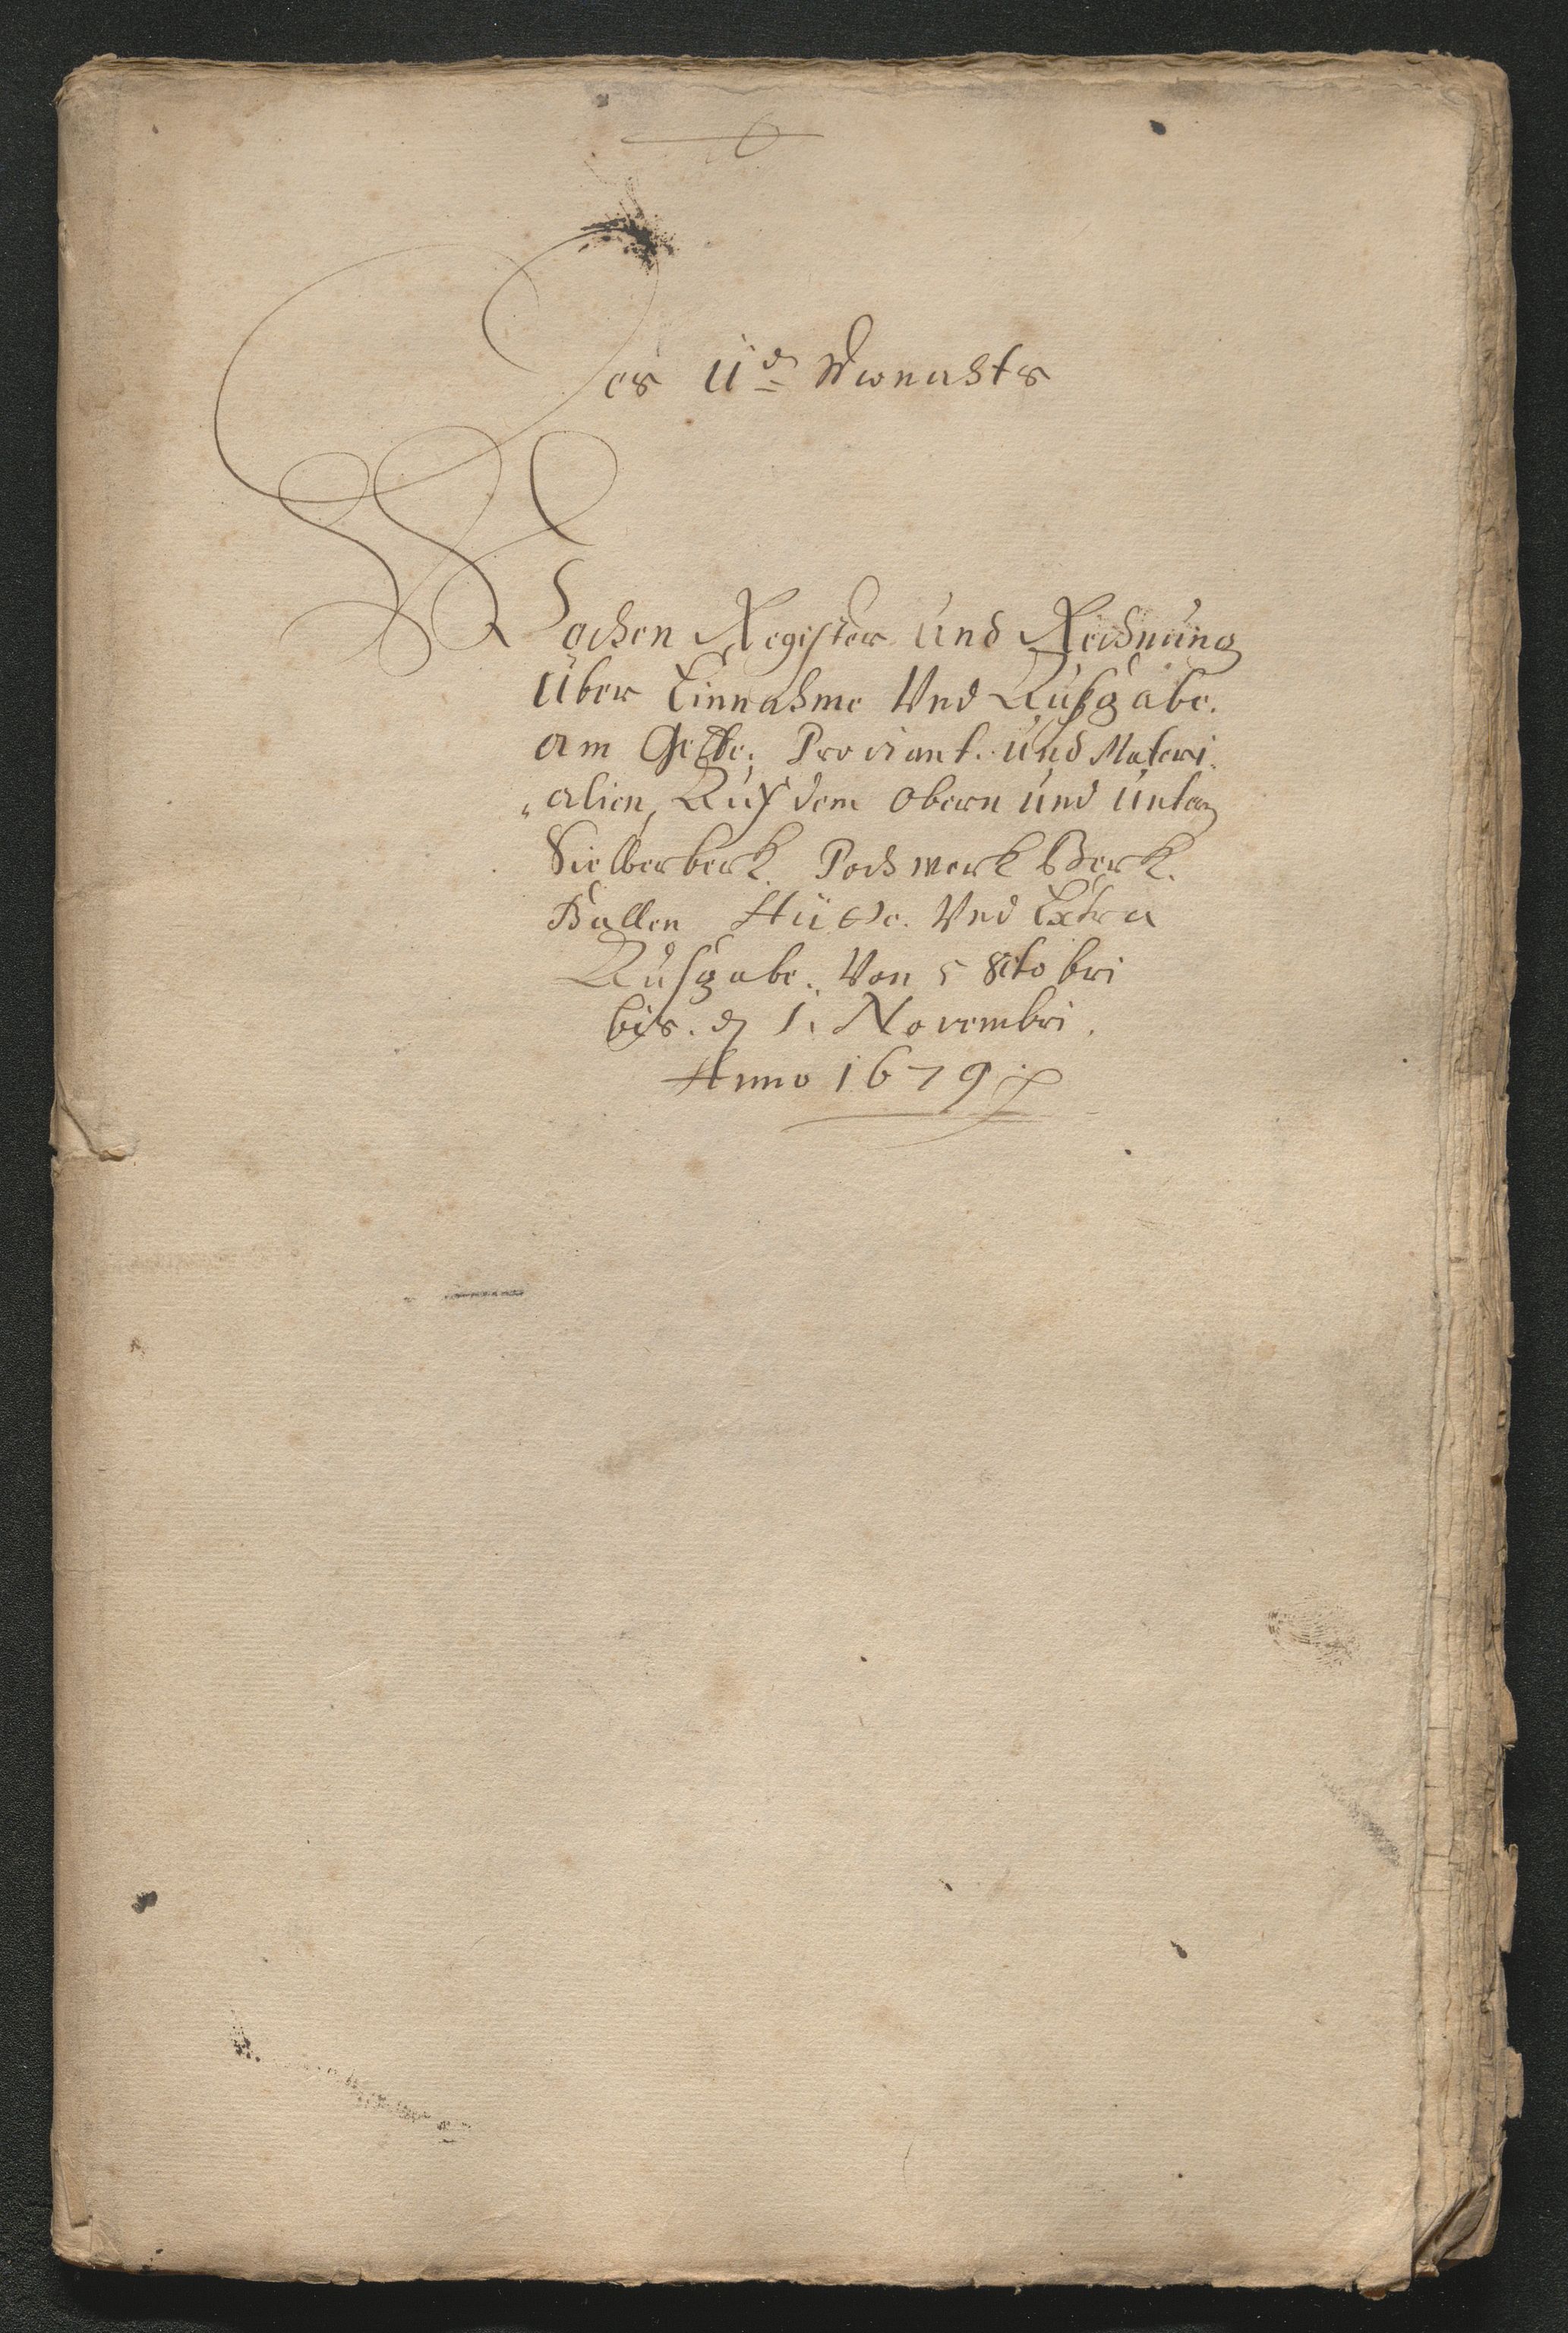 Des 11t Monahts
Wochen Register und Rechnung
über Einnahme Und Außgabe.
am Gelde, Proviant. und Materi¬
alien, Auf dem Obern und Untern
Sielberberk. Pochwerk Berk.
Ballen Hütte. Und Extra
Ausgabe. Von 5 8cto bri
bis. d 1. Novembri.
Anno 1679